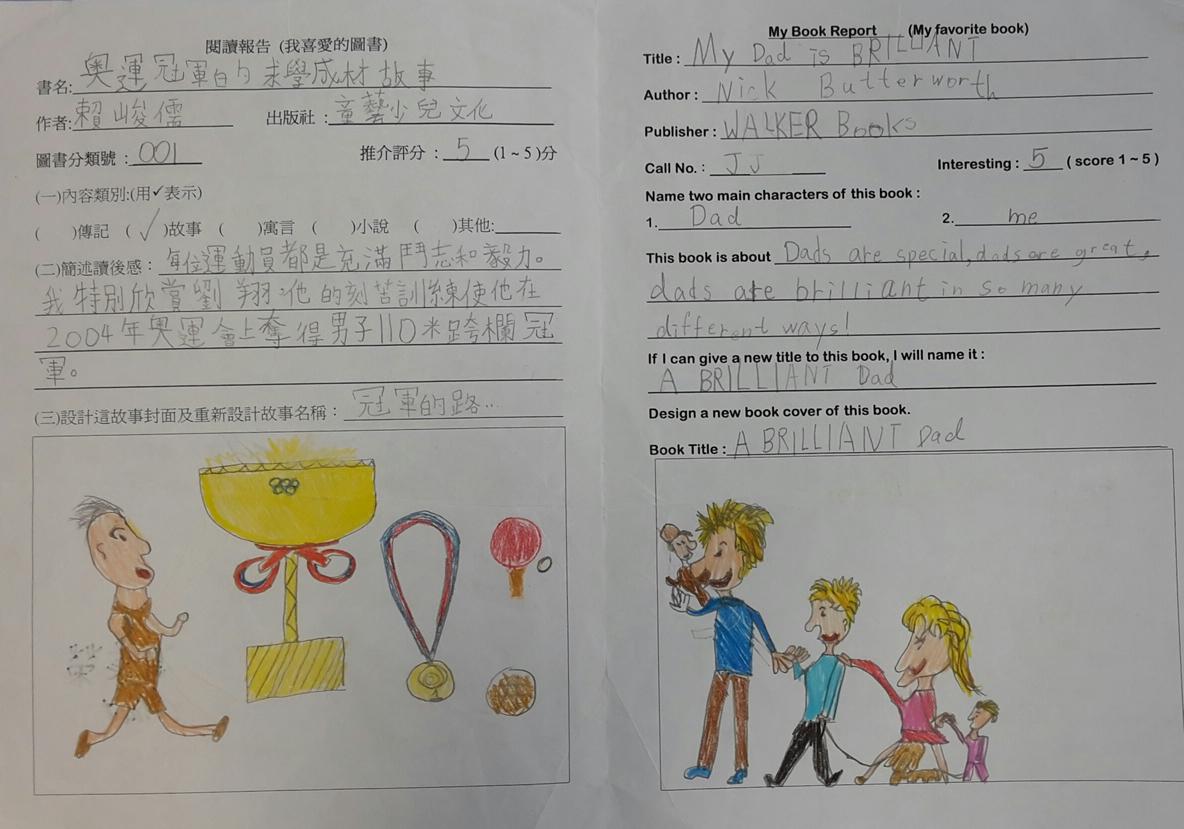 閱讀報告 (我喜愛的圖書)
書名:奧運冠軍的求學成材故事
作者:賴峻儒 出版社:童藝少兒文化
圖書分類號:001 推介評分: 5 (1~5)分
(一)內容類別:(用✓表示)
( )傳記 (✓)故事 ( )寓言 ( )小說 ( )其他:
(二)簡述讀後感:每位運動員都是充滿鬥志和毅力。
我特別欣賞劉翔:他的刻苦訓練使他在
2004年奧運會上奪得男子110米跨欄冠
軍。
(三)設計這故事封面及重新設計故事名稱:冠軍的路...
My Book Report (My favorite book)
Title: My Dad is BRILLIANT
Author: Nick Butterworth
Publisher: WALKER Books
Call No.: JJ Interesting: 5 (score 1~5)
Name two main characters of this book:
1. Dad 2. me
This book is about Dads are special, dads are great,
dads are brilliant in so many
different ways!
If I can give a new title to this book, I will name it:
A BRILLIANT Dad
Design a new book cover of this book.
Book Title: A BRILLIANT Dad